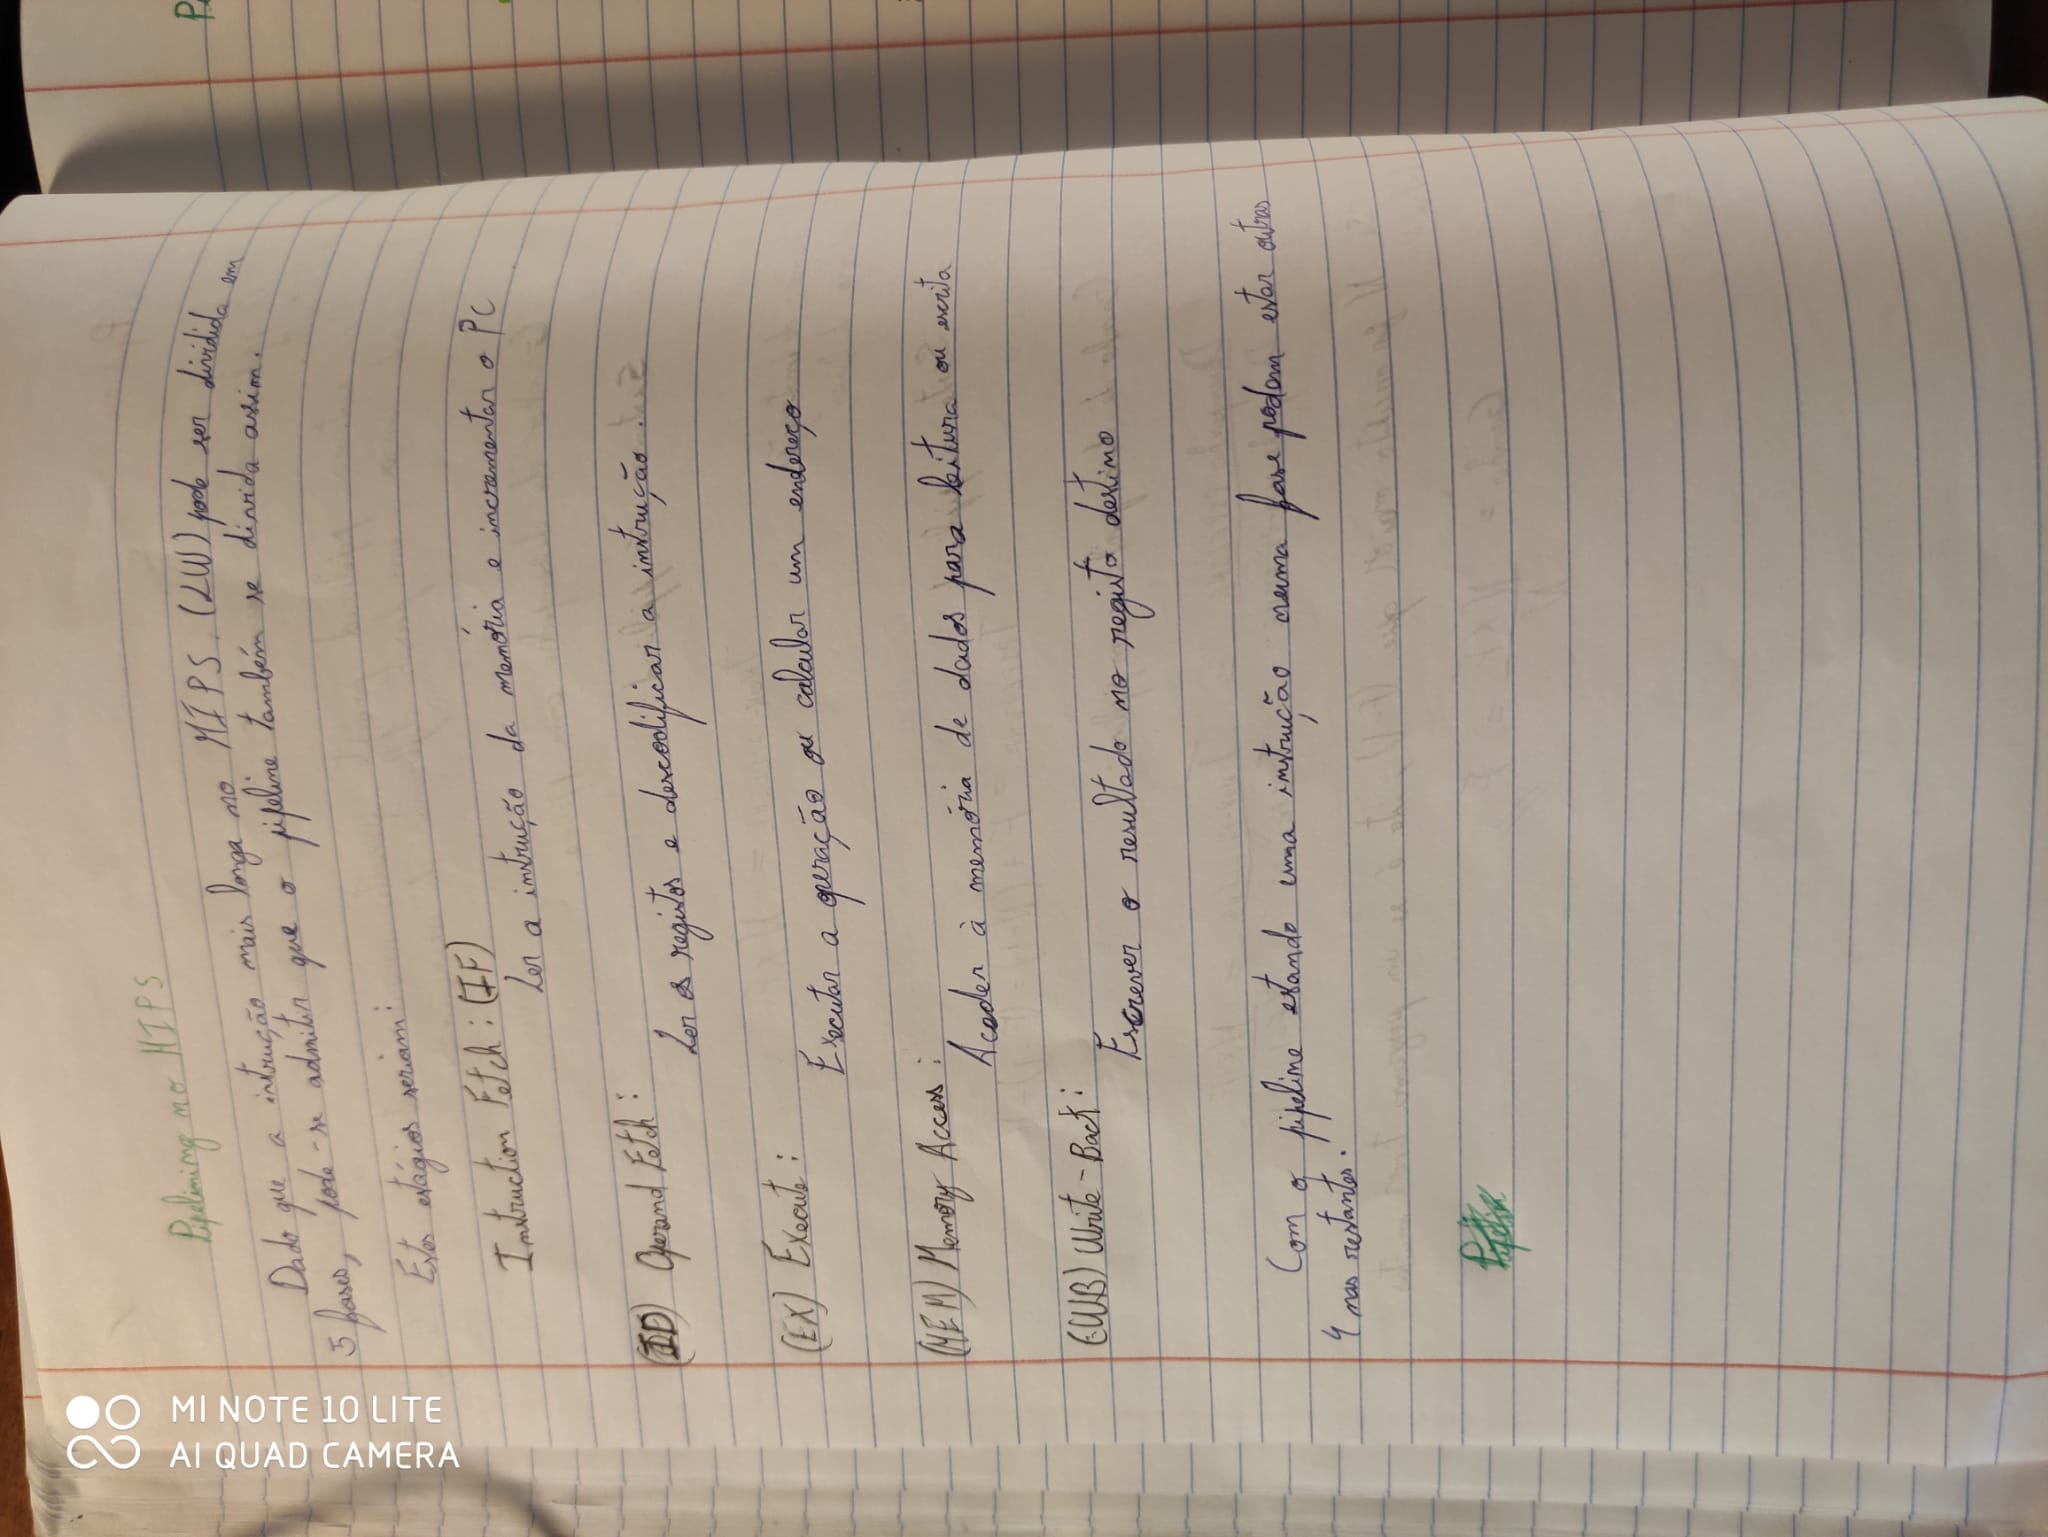 Pipelining no MIPS
Dado que a intrução mais longa no MIPS. (LW) pode ser dividida em
5 fases, pode-se admitir que o pipeline também se divida assim.
Estes estágios seriam:
Instruction Fetch: (IF)
Ler a instrução da memória e incrementar o PC
(ID) Operand Fetch:
Ler os registos e descodificar a instrução.
(EX) Execute:
Executar a operação ou calcular um endereço
(MEM) Memory Access:
Aceder à memória de dados para leitura ou escrita
(WB) Write-Back:
Escrever o resultado no registo destino
Com o pipeline estando uma instrução numa fase podem estar outras
4 nas restantes.
MI NOTE 10 LITE
AI QUAD CAMERA